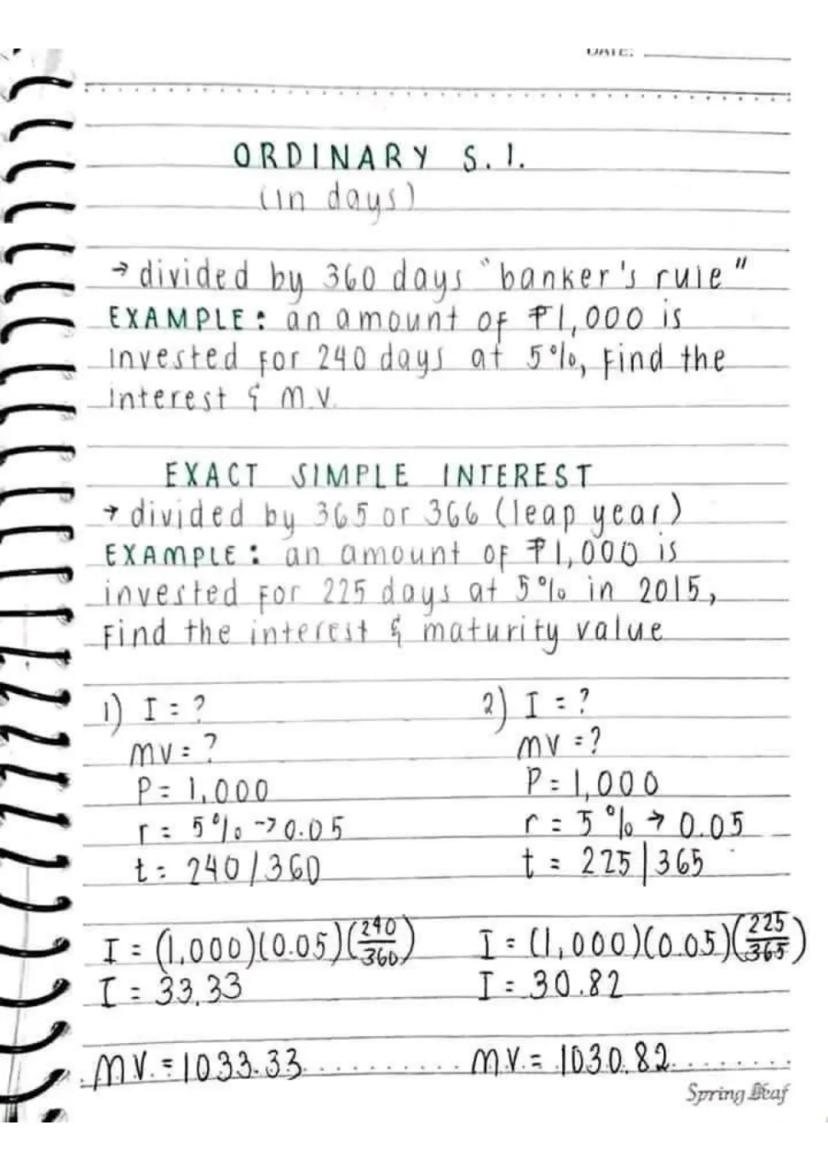 DATE:
ORDINARY S.I.
(in days)
→ divided by 360 days "banker's rule"
EXAMPLE: an amount of ₱1,000 is
invested for 240 days at 5%, Find the
interest & M.V.
EXACT SIMPLE INTEREST
→ divided by 365 or 366 (leap year)
EXAMPLE: an amount of ₱1,000 is
invested for 225 days at 5% in 2015,
Find the interest & maturity value
1) I = ?
MV = ?
P = 1,000
r = 5% → 0.05
t = 240/360
I = (1,000)(0.05)(240/360)
I = 33.33
MV. = 1033.33
2) I = ?
MV = ?
P = 1,000
r = 5% → 0.05
t = 225|365
I = (1,000)(0.05)(225/365)
I = 30.82
M.V. = 1030.82
Spring Leaf